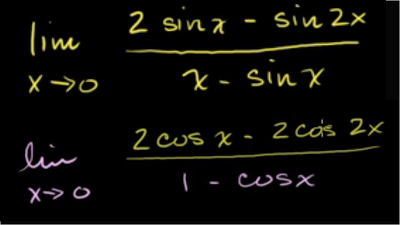 lim 2 sin x - sin 2x
x → 0 x - sin x
lim 2 cos x - 2 cos 2x
x → 0 1 - cos x